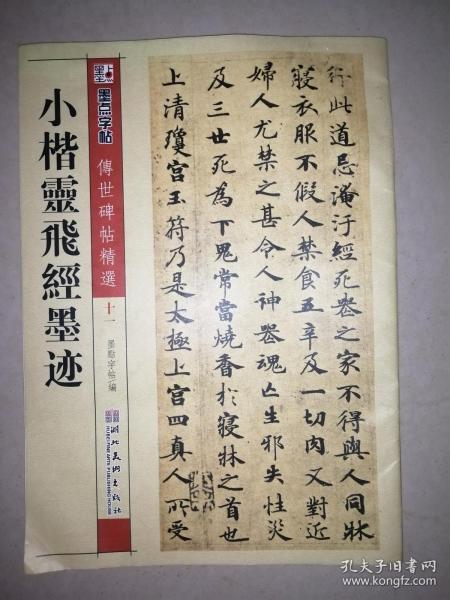 小楷靈飛經墨迹
墨点字帖
傳世碑帖精選
十一
墨點字帖/編
湖北美術出版社
HUBEI FINE ARTS PUBLISHING HOUSE
行此道忌淹汙經死喪之家不得與人同牀
寢衣服不假人禁食五辛及一切肉又對近
婦人尤禁之甚令人神喪魂亡生邪失性災
及三世死為下鬼常當燒香於寢牀之首也
上清瓊宮玉符乃是太極上宮四真人所受
孔夫子旧书网
www.kongfz.com